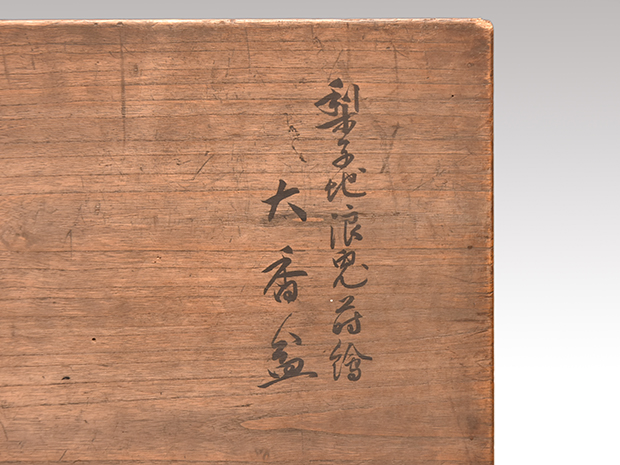 梨子地浪兎蒔繪
大香盆